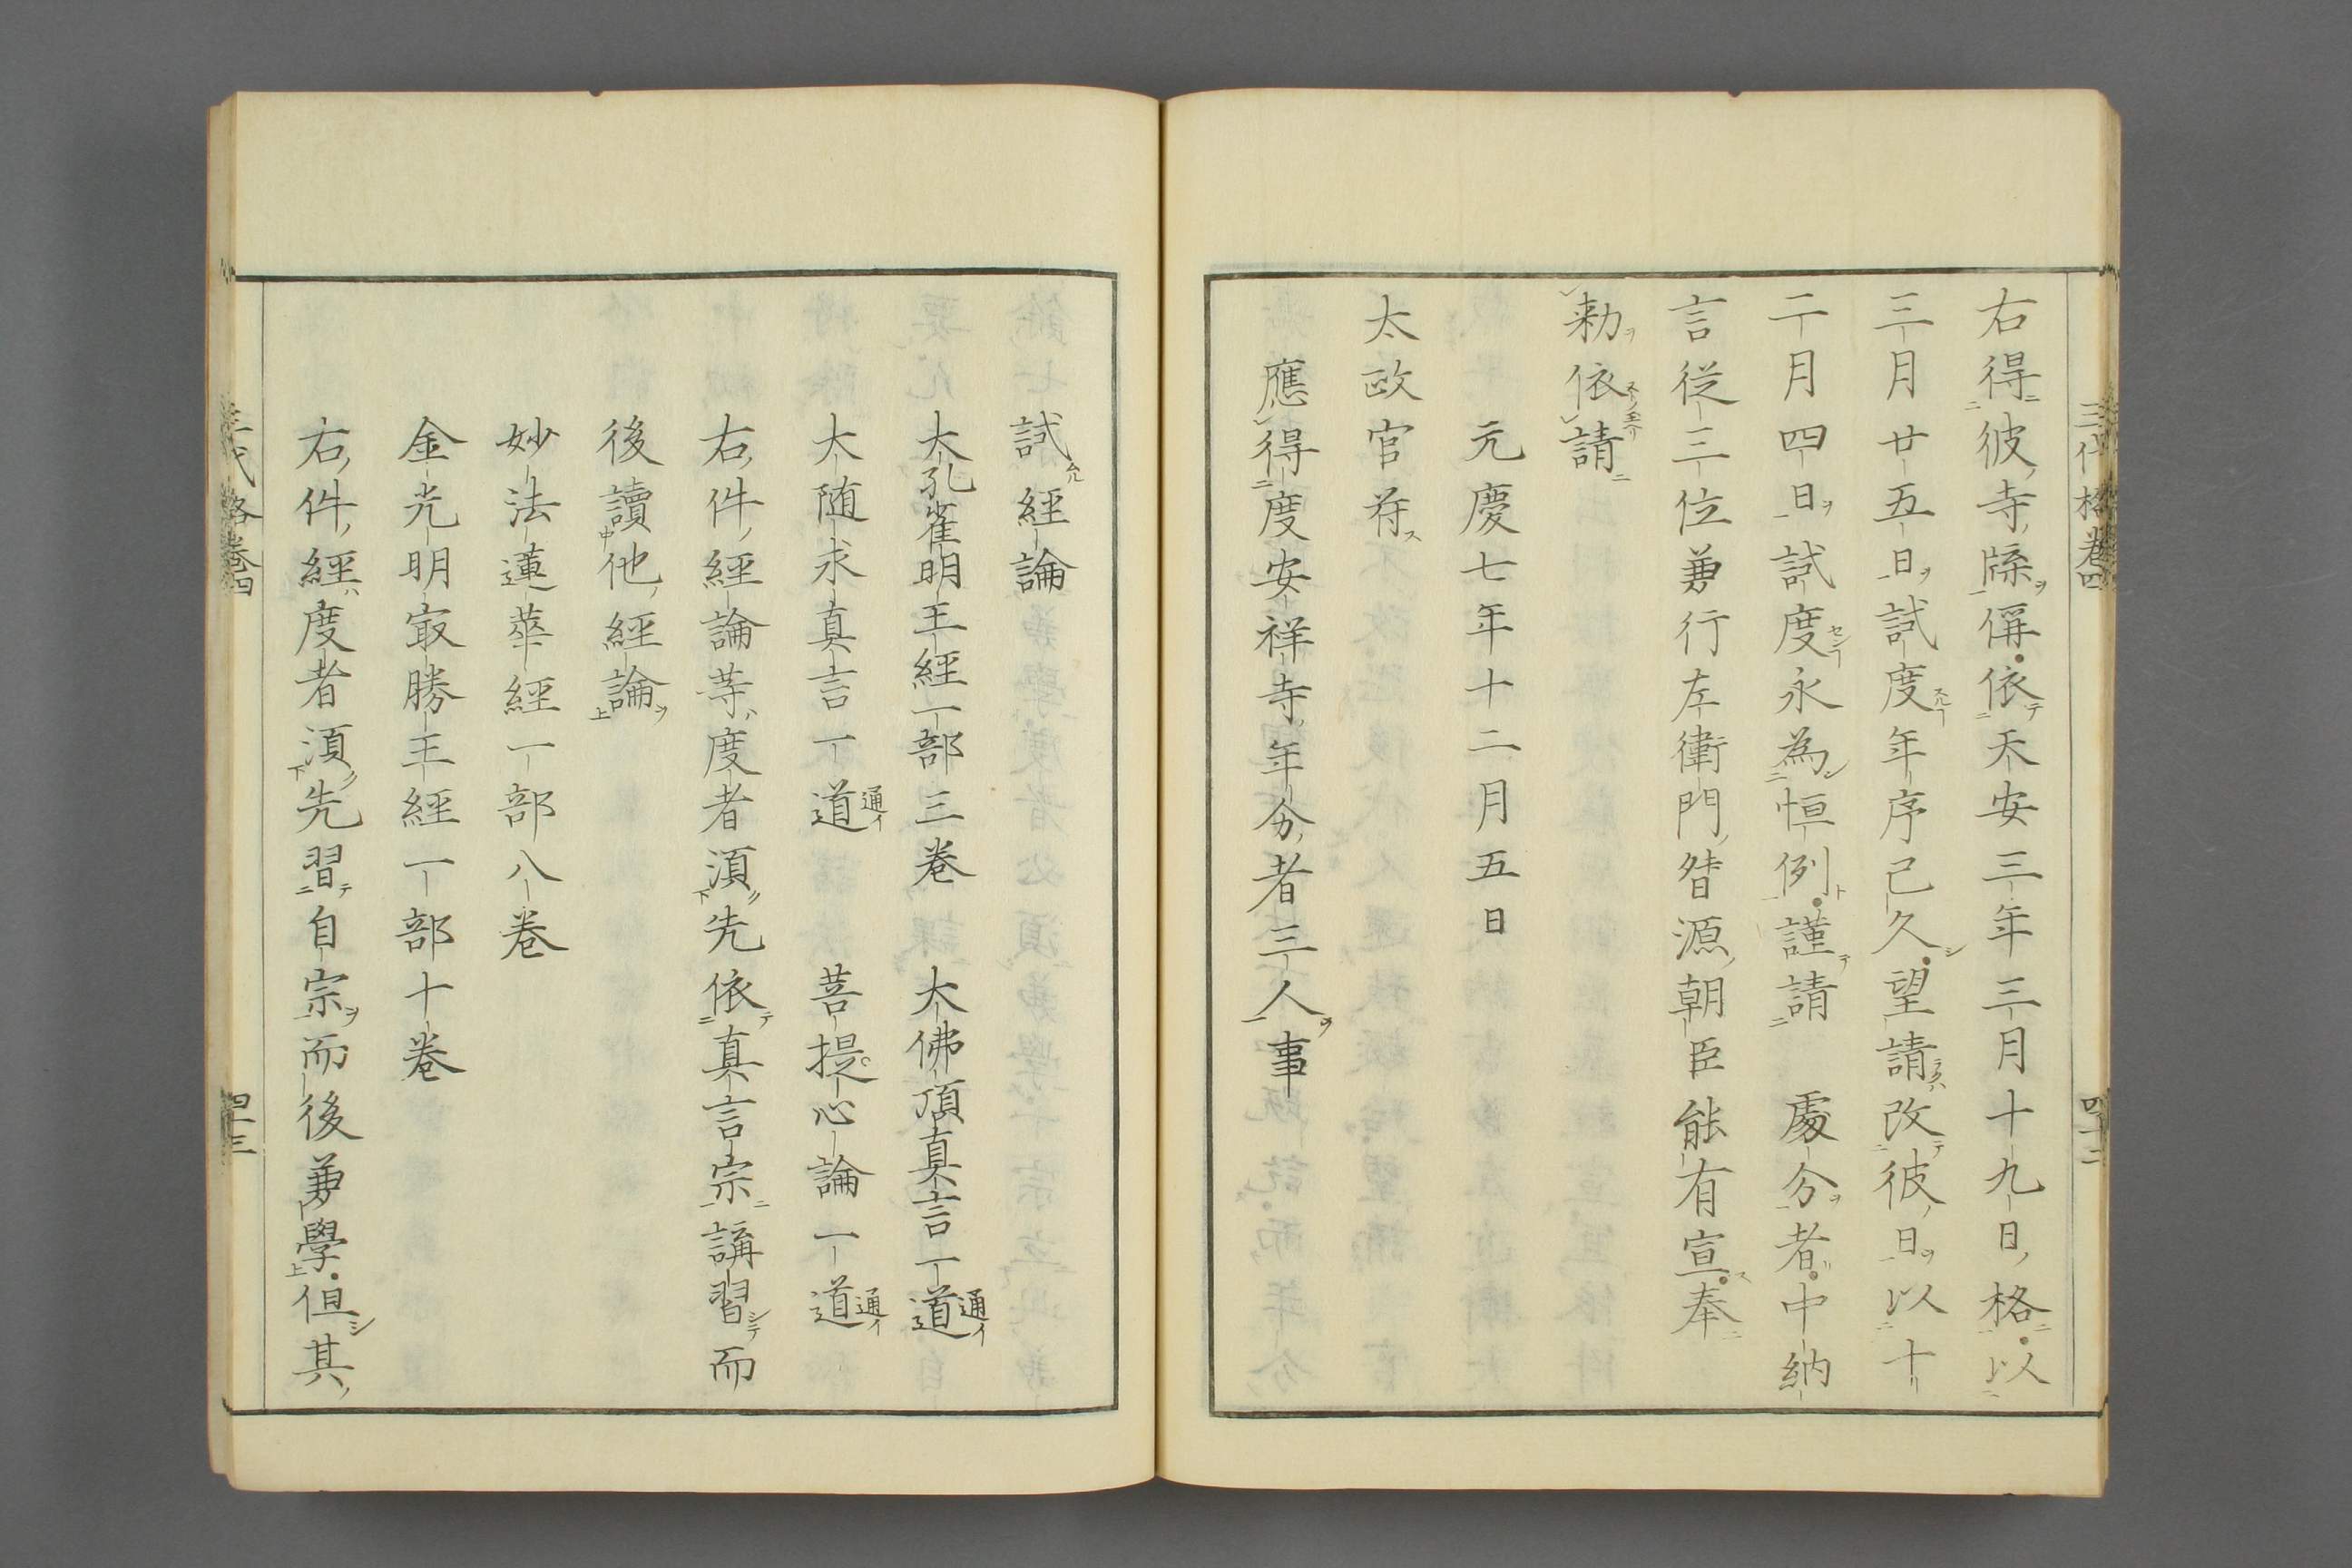 三代格卷四
四十二
右得彼寺牒偁依天安三年三月十九日格以
三月廿五日試度年序已久望請改彼日以十
二月四日試度永為恒例謹請　處分者中納
言從三位兼行左衛門督源朝臣能有宣奉
勅依請
元慶七年十二月五日
太政官符
應得度安祥寺年分者三人事
試經論
大孔雀明王經一部三卷　大佛頂真言一道通イ
大随求真言一道通イ　菩提心論一道通イ
右件經論等度者須先依真言宗講習而
後讀他經論
妙法蓮華經一部八卷
金光明冣勝王經一部十卷
右件經度者須先習自宗而後兼學但其
三代格卷四
四十三